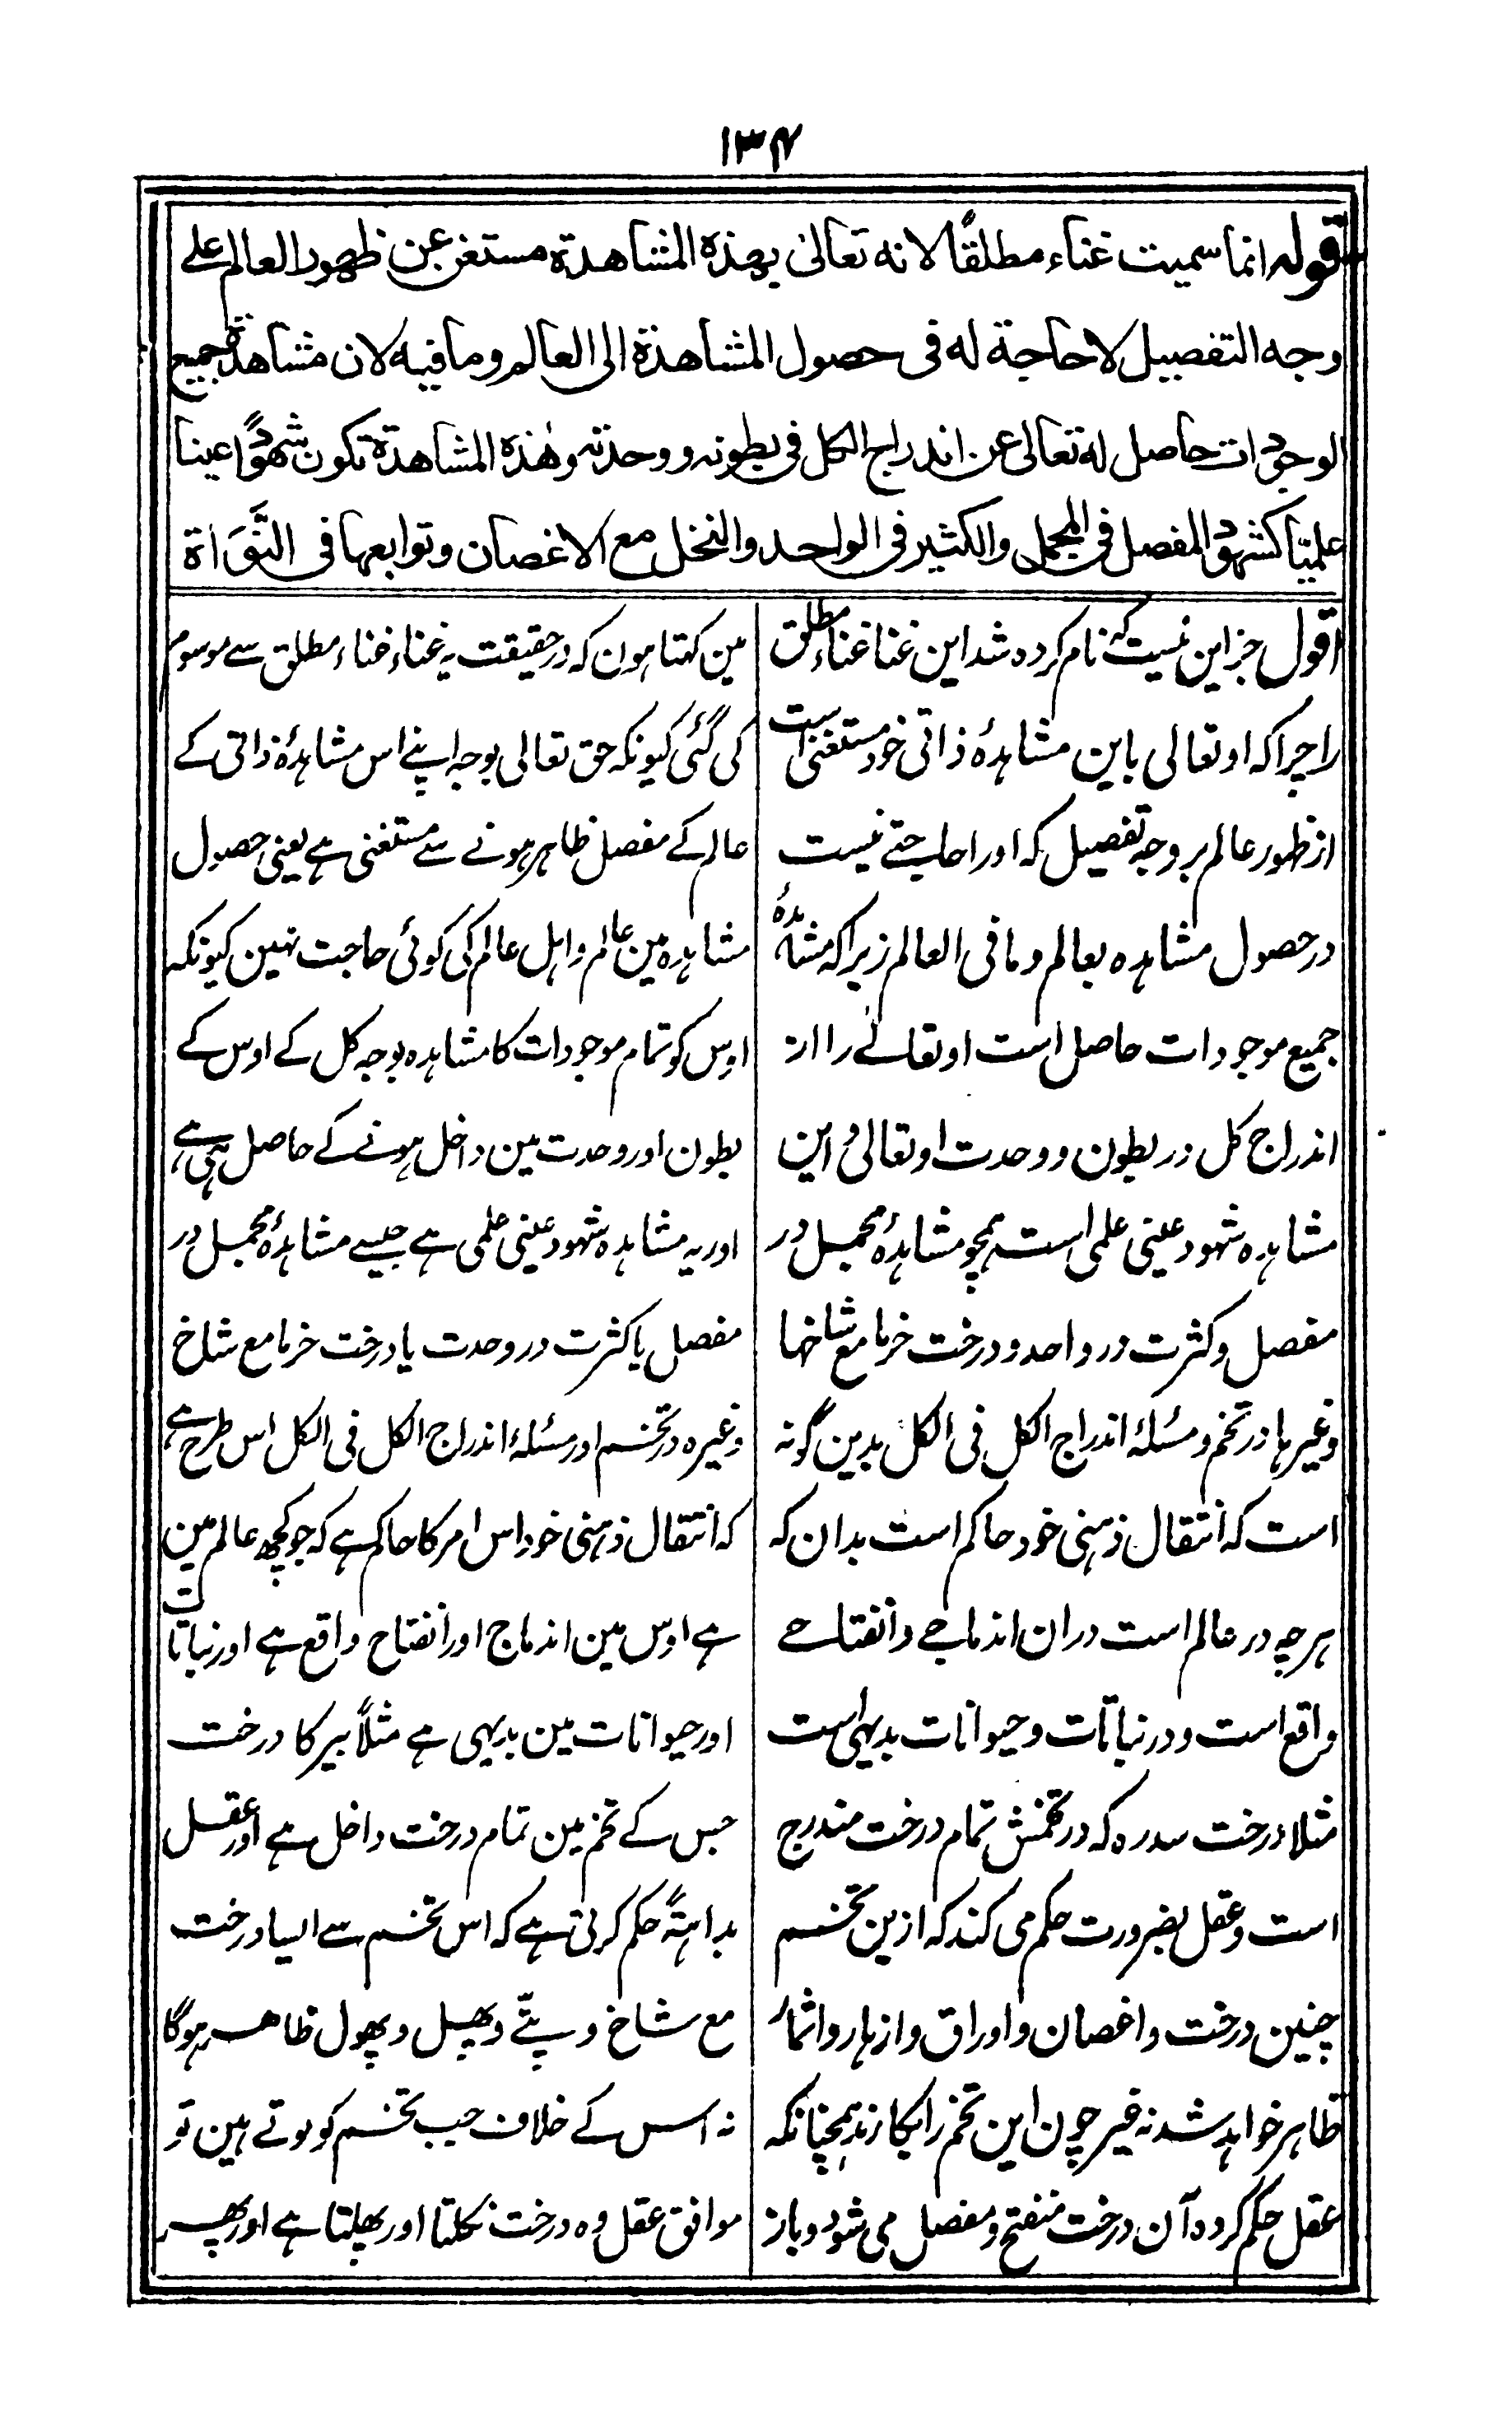 ۱۳۴
قوله انما سمیت غناء مطلقًا لانه تعالیٰ بهذه المشاهدة مستغن عن ظهور العالم علے
وجه التفصیل لا حاجة له فی حصول المشاهدة الی العالم وما فیه لان مشاهدة جمیع
الوجودات حاصل له تعالی عن اندراج الکل فی بطونه ووحدته وهٰذه المشاهدة تکون شهودًا عینا
علمیّا کشهود المفصل فی المجمل والکثیر فی الواحد والنخل مع الاغصان وتوابعها فی النَّوَاة
اقول جز این نیست که نام کرده شد این غنا غناء مطلق
را چرا که او تعالی باین مشاهدهٔ ذاتی خود مستغنی است
از ظهور عالم بر وجه تفصیل که او را حاجتے نیست
در حصول مشاہدہ بعالم و ما فی العالم زیرا کہ مشاہدۂ
جمیع موجودات حاصل است او تعالے را از
اندراج کل در بطون و وحدت او تعالیٰ و این
مشاہدہ شہود عینی علمی است ہمچو مشاہدۂ مجمل در
مفصل و کثرت در واحد و درخت خرما مع شاخہا
وغیرہا در تخم و مسئلۂ اندراج الکل فی الکل بدین گونہ
است کہ انتقال ذہنی خود حاکم است بدان کہ
ہر چہ در عالم است دران اندماجے و انفتاحے
واقع است و در نباتات و حیوانات بدیہی است
مثلا درخت سدرہ کہ در تخمش تمام درخت مندرج
است و عقل بضرورت حکم می کند کہ ازین تخم
چنین درخت و اغصان و اوراق و ازہار و اثمار
ظاہر خواہد شد نہ غیر چون این تخم را بکارند ہمچنانکہ
عقل حکم کردہ آن درخت منفتح و مفصل می شود و باز
مین کہتا ہون کہ در حقیقت یہ غناء غناء مطلق سے موسوم
کی گئی کیونکہ حق تعالی بوجہ اپنے اس مشاہدۂ ذاتی کے
عالم کے مفصل ظاہر ہونے سے مستغنی ہے یعنی حصول
مشاہدہ مین عالم و اہل عالم کی کوئی حاجت نہین کیونکہ
اوس کو تمام موجودات کا مشاہدہ بوجہ کل کے اوس کے
بطون اور وحدت مین داخل ہونے کے حاصل ہی ہے
اور یہ مشاہدہ شہود عینی علمی ہے جیسے مشاہدۂ مجمل در
مفصل یا کثرت در وحدت یا درخت خرما مع شاخ
وغیرہ در تخم اور مسئلۂ اندراج الکل فی الکل اس طرح ہے
کہ انتقال ذہنی خود اس امر کا حاکم ہے کہ جو کچھ عالم مین
ہے اوس مین اندماج اور انفتاح واقع ہے اور نباتات
اور حیوانات مین بدیہی ہے مثلاً بیر کا درخت
جس کے تخم مین تمام درخت داخل ہے اور عقل
بداہتہً حکم کرتی ہے کہ اس تخم سے ایسا درخت
مع شاخ و پتّے و پھل و پھول ظاہر ہوگا
نہ اس کے خلاف جب تخم کو بوتے ہین تو
موافق عقل وہ درخت نکلتا اور پھلتا ہے اور پھر